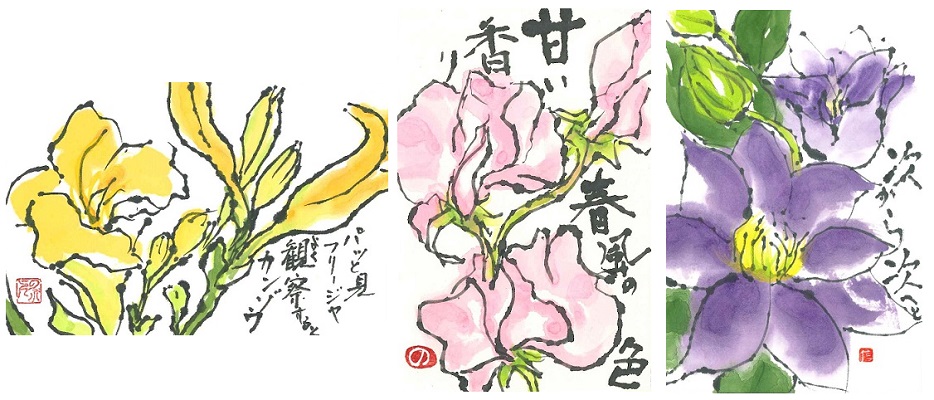 パッと見
フリージヤ
よく
観察すると
カンゾウ
甘い
香り
春風の
色
の
次から次と